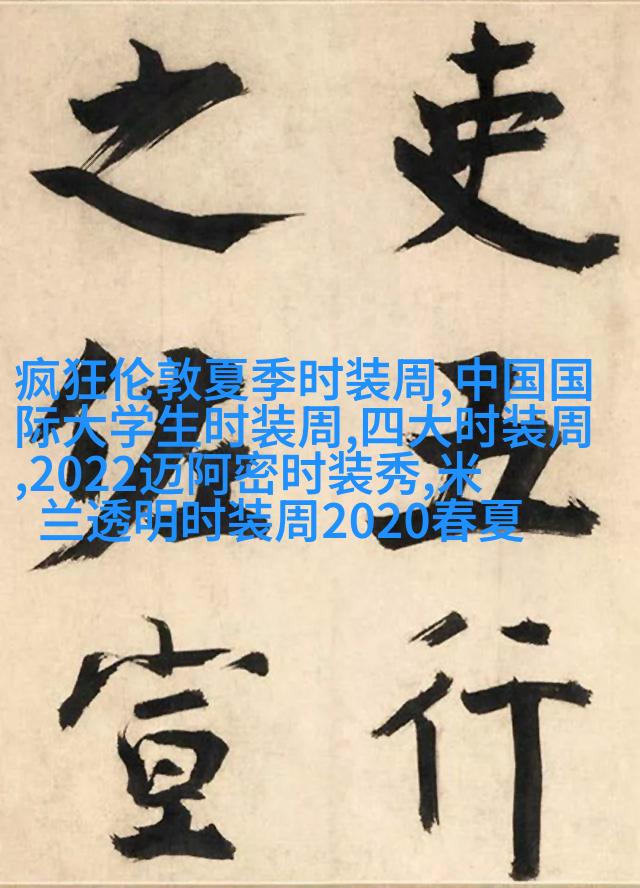 吏五行
之宣
疯狂伦敦夏季时装周,中国国
际大学生时装周,四大时装周
,2022迈阿密时装秀,米
兰透明时装周2020春夏